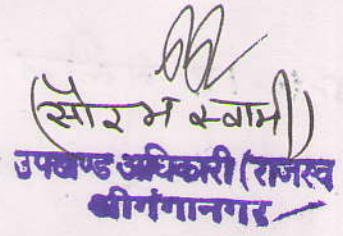 (सौरभ स्वामी)
उपखण्ड अधिकारी (राजस्व
श्रीगंगानगर